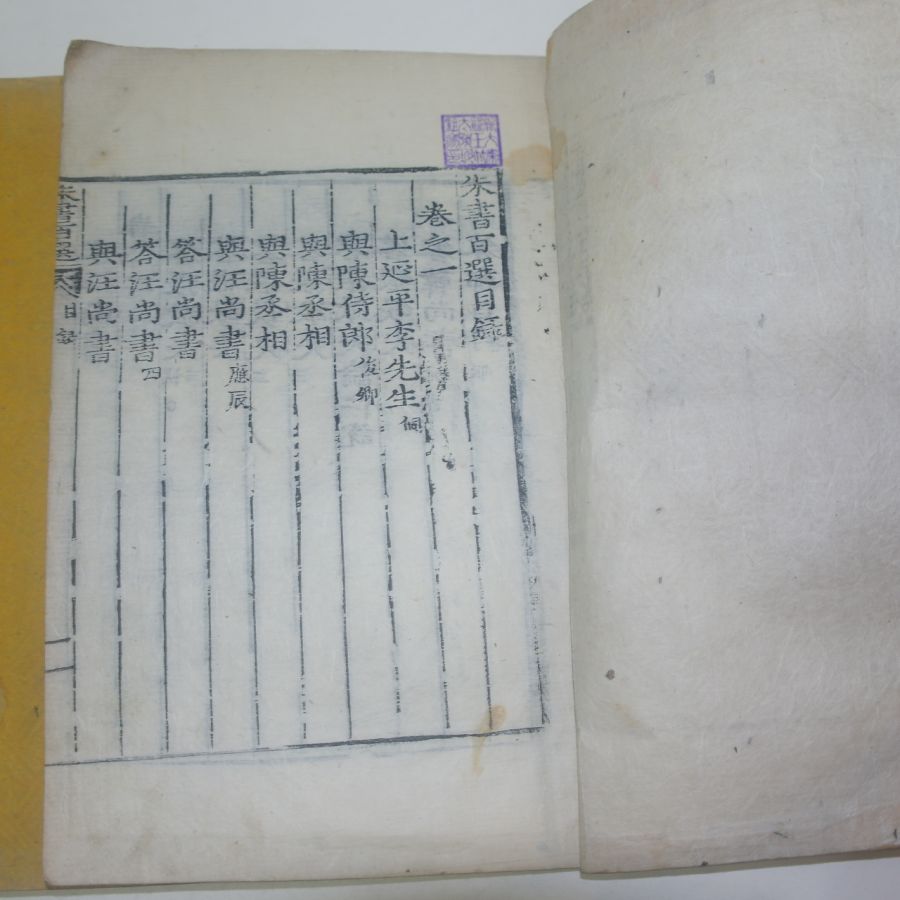 朱書百選目錄
卷之一
上延平李先生 侗
與陳侍郎 俊卿
與陳丞相
與陳丞相
與汪尚書 應辰
答汪尚書
答汪尚書 四
與汪尚書
朱書百選 目錄